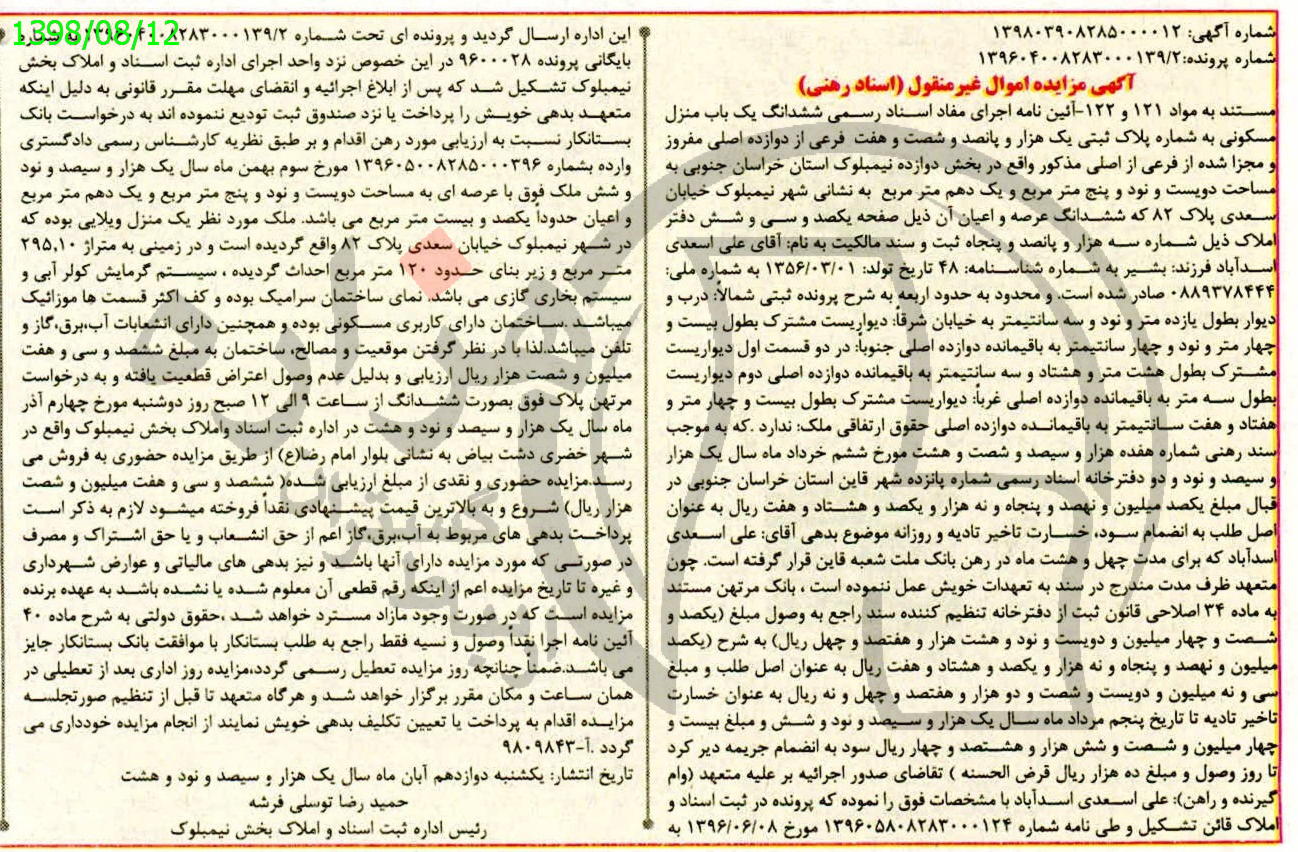 1398/08/12
شماره آگهی: ۱۳۹۸۰۳۹۰۸۲۸۵۰۰۰۰۱۲
شماره پرونده:۱۳۹۶۰۴۰۰۸۲۸۳۰۰۰۱۳۹/۲
آگهی مزایده اموال غیرمنقول (اسناد رهنی)
مستند به مواد ۱۲۱ و ۱۲۲-آئین نامه اجرای مفاد اسناد رسمی ششدانگ یک باب منزل
مسکونی به شماره پلاک ثبتی یک هزار و پانصد و شصت و هفت فرعی از دوازده اصلی مفروز
و مجزا شده از فرعی از اصلی مذکور واقع در بخش دوازده نیمبلوک استان خراسان جنوبی به
مساحت دویست و نود و پنج متر مربع و یک دهم متر مربع به نشانی شهر نیمبلوک خیابان
سعدی پلاک ۸۲ که ششدانگ عرصه و اعیان آن ذیل صفحه یکصد و سی و شش دفتر
املاک ذیل شماره سه هزار و پانصد و پنجاه ثبت و سند مالکیت به نام: آقای علی اسعدی
اسدآباد فرزند: بشیر به شماره شناسنامه: ۴۸ تاریخ تولد: ۱۳۵۶/۰۳/۰۱ به شماره ملی:
۰۸۸۹۳۷۸۴۴۴ صادر شده است. و محدود به حدود اربعه به شرح پرونده ثبتی شمالاً: درب و
دیوار بطول یازده متر و نود و سه سانتیمتر به خیابان شرقاً: دیواریست مشترک بطول بیست و
چهار متر و نود و چهار سانتیمتر به باقیمانده دوازده اصلی جنوباً: در دو قسمت اول دیواریست
مشترک بطول هشت متر و هشتاد و سه سانتیمتر به باقیمانده دوازده اصلی دوم دیواریست
بطول سه متر به باقیمانده دوازده اصلی غرباً: دیواریست مشترک بطول بیست و چهار متر و
هفتاد و هفت سانتیمتر به باقیمانده دوازده اصلی حقوق ارتفاقی ملک: ندارد .که به موجب
سند رهنی شماره هفده هزار و سیصد و شصت و هشت مورخ ششم خرداد ماه سال یک هزار
و سیصد و نود و دو دفترخانه اسناد رسمی شماره پانزده شهر قاین استان خراسان جنوبی در
قبال مبلغ یکصد میلیون و نهصد و پنجاه و نه هزار و یکصد و هشتاد و هفت ریال به عنوان
اصل طلب به انضمام سود، خسارت تاخیر تادیه و روزانه موضوع بدهی آقای: علی اسعدی
اسدآباد که برای مدت چهل و هشت ماه در رهن بانک ملت شعبه قاین قرار گرفته است. چون
متعهد ظرف مدت مندرج در سند به تعهدات خویش عمل ننموده است ، بانک مرتهن مستند
به ماده ۳۴ اصلاحی قانون ثبت از دفترخانه تنظیم کننده سند راجع به وصول مبلغ (یکصد و
شصت و چهار میلیون و دویست و نود و هشت هزار و هفتصد و چهل ریال) به شرح (یکصد
میلیون و نهصد و پنجاه و نه هزار و یکصد و هشتاد و هفت ریال به عنوان اصل طلب و مبلغ
سی و نه میلیون و دویست و شصت و دو هزار و هفتصد و چهل و نه ریال به عنوان خسارت
تاخیر تادیه تا تاریخ پنجم مرداد ماه سال یک هزار و سیصد و نود و شش و مبلغ بیست و
چهار میلیون و شصت و شش هزار و هشتصد و چهار ریال سود به انضمام جریمه دیر کرد
تا روز وصول و مبلغ ده هزار ریال قرض الحسنه ) تقاضای صدور اجرائیه بر علیه متعهد (وام
گیرنده و راهن): علی اسعدی اسدآباد با مشخصات فوق را نموده که پرونده در ثبت اسناد و
املاک قائن تشکیل و طی نامه شماره ۱۳۹۶۰۵۸۰۸۲۸۳۰۰۰۱۲۴ مورخ ۱۳۹۶/۰۶/۰۸ به
این اداره ارسال گردید و پرونده ای تحت شماره ۱۳۹۶۰۴۰۰۸۲۸۳۰۰۰۱۳۹/۲ به شماره
بایگانی پرونده ۹۶۰۰۰۲۸ در این خصوص نزد واحد اجرای اداره ثبت اسناد و املاک بخش
نیمبلوک تشکیل شد که پس از ابلاغ اجرائیه و انقضای مهلت مقرر قانونی به دلیل اینکه
متعهد بدهی خویش را پرداخت یا نزد صندوق ثبت تودیع ننموده اند به درخواست بانک
بستانکار نسبت به ارزیابی مورد رهن اقدام و بر طبق نظریه کارشناس رسمی دادگستری
وارده بشماره ۱۳۹۶۰۵۰۰۸۲۸۵۰۰۰۳۹۶ مورخ سوم بهمن ماه سال یک هزار و سیصد و نود
و شش ملک فوق با عرصه ای به مساحت دویست و نود و پنج متر مربع و یک دهم متر مربع
و اعیان حدوداً یکصد و بیست متر مربع می باشد. ملک مورد نظر یک منزل ویلایی بوده که
در شهر نیمبلوک خیابان سعدی پلاک ۸۲ واقع گردیده است و در زمینی به متراژ ۲۹۵,۱۰
متر مربع و زیر بنای حدود ۱۲۰ متر مربع احداث گردیده ، سیستم گرمایش کولر آبی و
سیستم بخاری گازی می باشد. نمای ساختمان سرامیک بوده و کف اکثر قسمت ها موزائیک
میباشد .ساختمان دارای کاربری مسکونی بوده و همچنین دارای انشعابات آب،برق،گاز و
تلفن میباشد.لذا با در نظر گرفتن موقعیت و مصالح، ساختمان به مبلغ ششصد و سی و هفت
میلیون و شصت هزار ریال ارزیابی و بدلیل عدم وصول اعتراض قطعیت یافته و به درخواست
مرتهن پلاک فوق بصورت ششدانگ از ساعت ۹ الی ۱۲ صبح روز دوشنبه مورخ چهارم آذر
ماه سال یک هزار و سیصد و نود و هشت در اداره ثبت اسناد واملاک بخش نیمبلوک واقع در
شهر خضری دشت بیاض به نشانی بلوار امام رضا(ع) از طریق مزایده حضوری به فروش می
رسد.مزایده حضوری و نقدی از مبلغ ارزیابی شده( ششصد و سی و هفت میلیون و شصت
هزار ریال) شروع و به بالاترین قیمت پیشنهادی نقداً فروخته میشود لازم به ذکر است
پرداخت بدهی های مربوط به آب،برق،گاز اعم از حق انشعاب و یا حق اشتراک و مصرف
در صورتی که مورد مزایده دارای آنها باشد و نیز بدهی های مالیاتی و عوارض شهرداری
و غیره تا تاریخ مزایده اعم از اینکه رقم قطعی آن معلوم شده یا نشده باشد به عهده برنده
مزایده است که در صورت وجود مازاد مسترد خواهد شد ،حقوق دولتی به شرح ماده ۴۰
آئین نامه اجرا نقداً وصول و نسیه فقط راجع به طلب بستانکار با موافقت بانک بستانکار جایز
می باشد.ضمناً چنانچه روز مزایده تعطیل رسمی گردد،مزایده روز اداری بعد از تعطیلی در
همان ساعت و مکان مقرر برگزار خواهد شد و هرگاه متعهد تا قبل از تنظیم صورتجلسه
مزایده اقدام به پرداخت یا تعیین تکلیف بدهی خویش نمایند از انجام مزایده خودداری می
گردد .آ-۹۸۰۹۸۴۳
تاریخ انتشار: یکشنبه دوازدهم آبان ماه سال یک هزار و سیصد و نود و هشت
حمید رضا توسلی فرشه
رئیس اداره ثبت اسناد و املاک بخش نیمبلوک